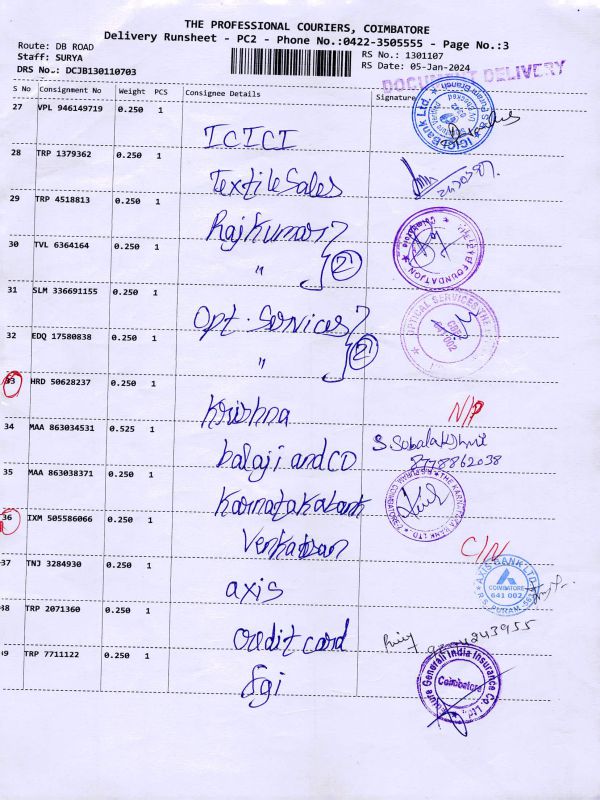 THE PROFESSIONAL COURIERS, COIMBATORE
Delivery Runsheet - PC2 - Phone No.:0422-3505555 - Page No.:3
Route: DB ROAD
Staff: SURYA
DRS No.: DCJB130110703
RS No.: 1301107
RS Date: 05-Jan-2024
DOCUMENT DELIVERY
S No Consignment No Weight PCS Consignee Details Signature
27 VPL 946149719 0.250 1
ICICI
28 TRP 1379362 0.250 1
Textile Sales
29 TRP 4518813 0.250 1
Rajkumar
30 TVL 6364164 0.250 1
" 2
31 SLM 336691155 0.250 1
Opt. Services
32 EDQ 17580838 0.250 1
" 2
33 HRD 50628237 0.250 1
Krishna N/P
34 MAA 863034531 0.525 1
balaji and CO
8778862038
35 MAA 863038371 0.250 1
Karnataka bank
36 IXM 505586066 0.250 1
Venkatesan C/N
37 TNJ 3284930 0.250 1
axis
AXIS BANK LTD
COIMBATORE
641 002
R.S. PURAM
38 TRP 2071360 0.250 1
credit card
39 TRP 7711122 0.250 1
fgi
Future Generali India Insurance Co. Ltd.
Coimbatore